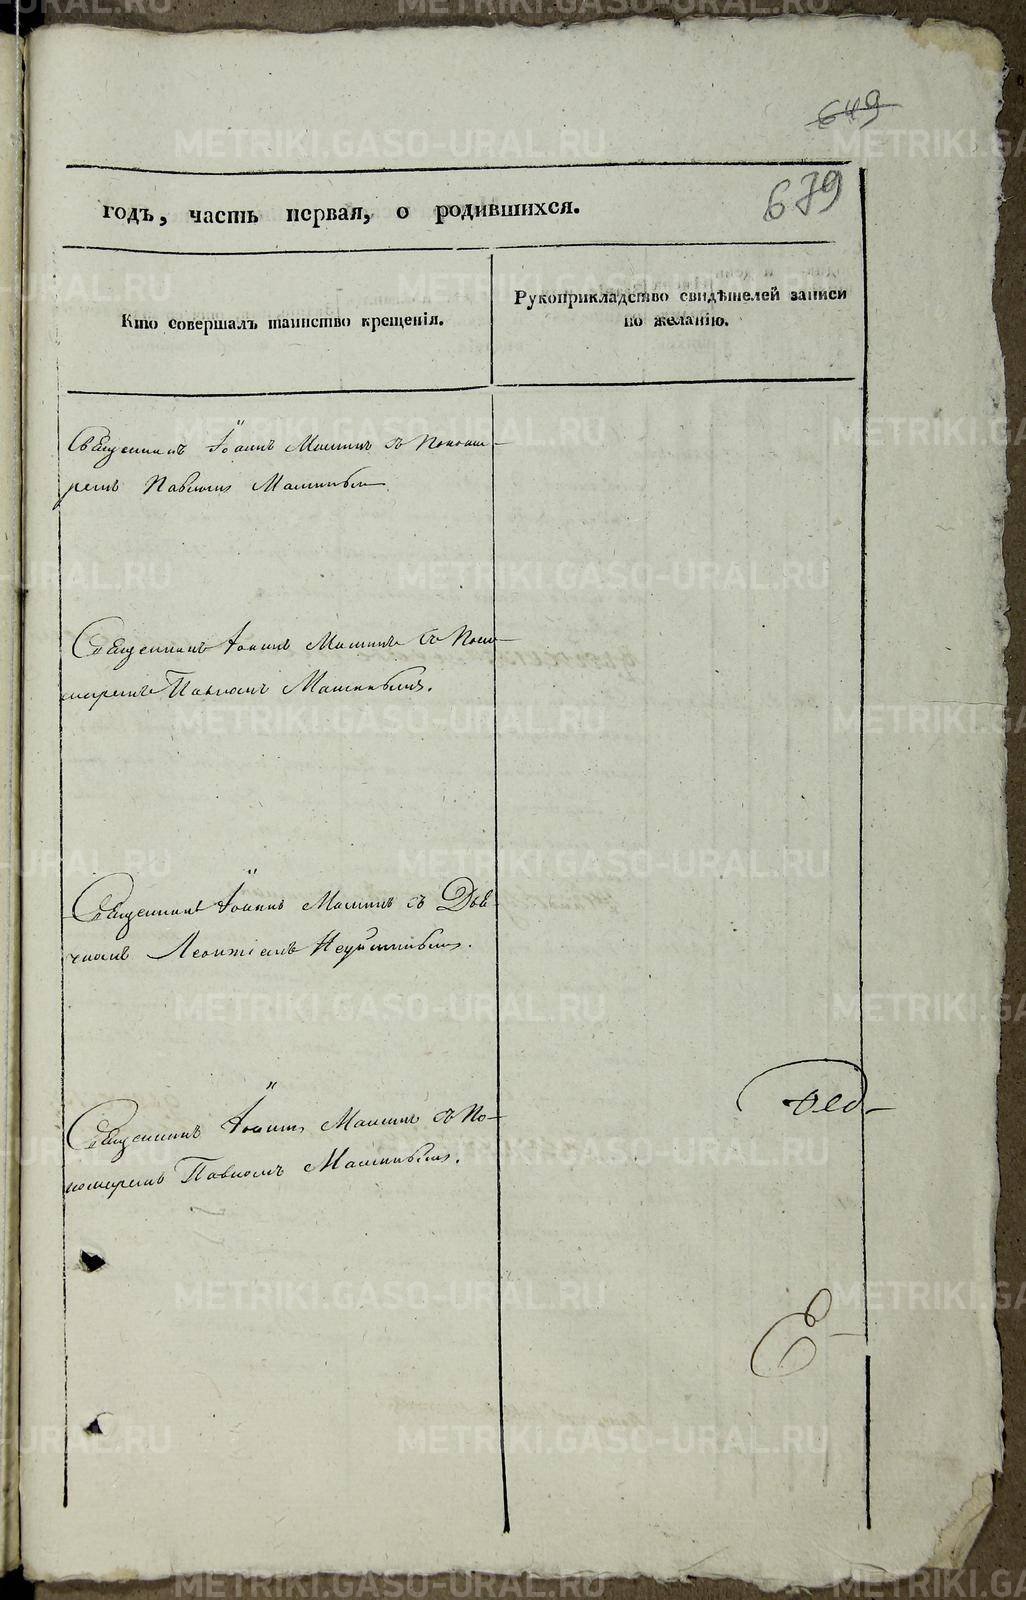 649
679
годъ, часть первая, о родившихся.
Кто совершалъ таинство крещенія.
Рукоприкладство свидѣтелей записи
по желанію.
Священникъ Іоаннъ Маминъ съ Понома-
ремъ Павломъ Маминымъ
Священникъ Іоаннъ Маминъ съ Поно-
маремъ Павломъ Маминымъ.
Священникъ Іоаннъ Маминъ съ Дья-
чкомъ Леонтіемъ
Священникъ Іоаннъ Маминъ съ По-
номаремъ Павломъ Маминымъ.
METRIKI.GASO-URAL.RU